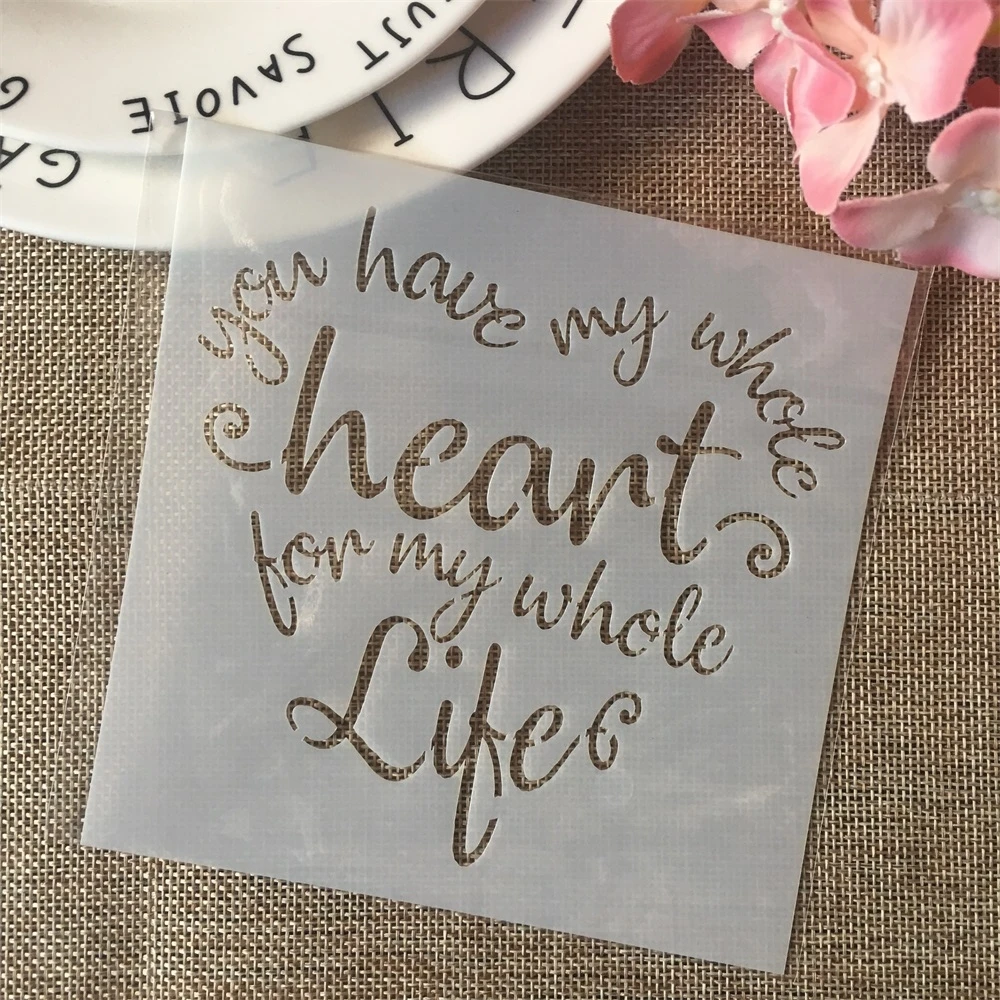 UIT SAVOIE
GA
RI
you have my whole
heart
for my whole
Life